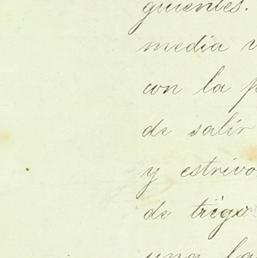 guientes.
media v
con la p
de salir
y estrivo
de trigo
una la